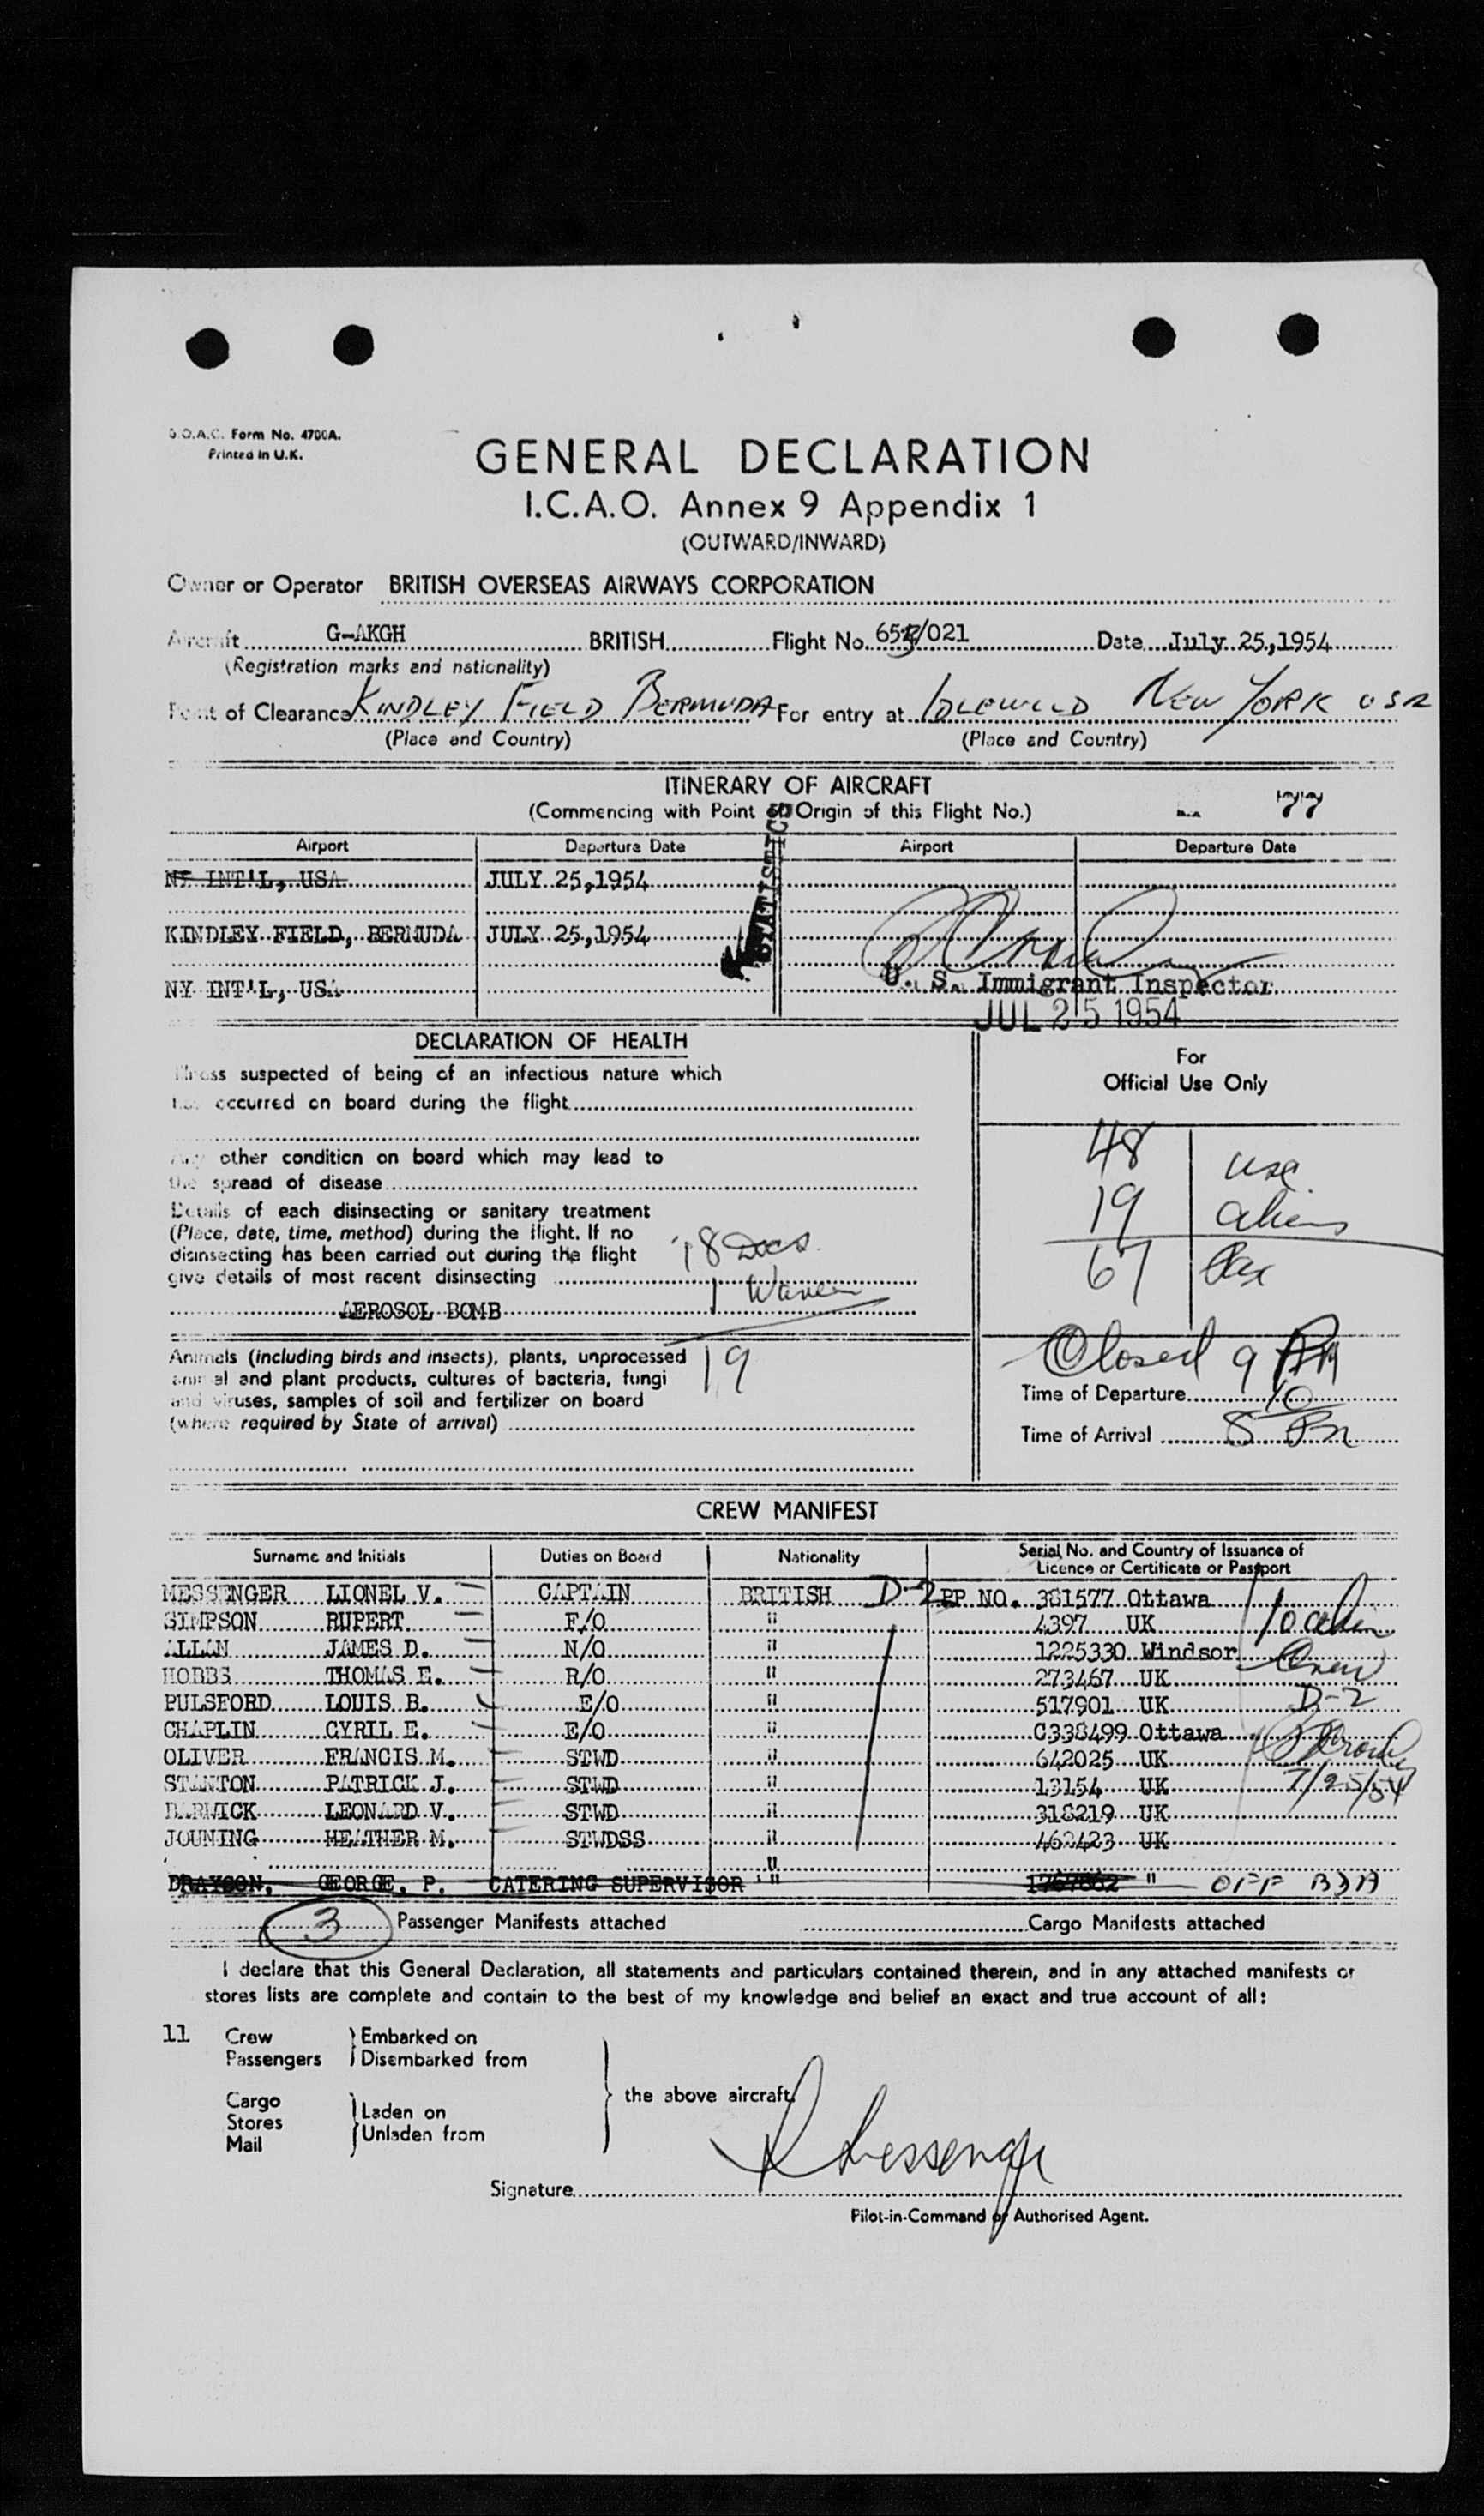 B.O.A.C. Form No. 4700A.
Printed in U.K.
GENERAL DECLARATION
I.C.A.O. Annex 9 Appendix 1
(OUTWARD/INWARD)
Owner or Operator BRITISH OVERSEAS AIRWAYS CORPORATION
Aircraft G-AKGH BRITISH Flight No. /021 Date July 25, 1954
(Registration marks and nationality)
Point of Clearance KINDLEY FIELD BERMUDA For entry at IDLEWILD NEW YORK USA
(Place and Country) (Place and Country)
ITINERARY OF AIRCRAFT
(Commencing with Point of Origin of this Flight No.) 77
STATISTICS
Airport Departure Date Airport Departure Date
NY INT'L, USA JULY 25,1954
KINDLEY FIELD, BERMUDA JULY 25,1954
NY INT'L, USA
U. S. Immigrant Inspector
JUL 25 1954
DECLARATION OF HEALTH
Illness suspected of being of an infectious nature which
has occurred on board during the flight
Any other condition on board which may lead to
the spread of disease
Details of each disinsecting or sanitary treatment
(Place, date, time, method) during the flight. If no
disinsecting has been carried out during the flight
give details of most recent disinsecting
AEROSOL BOMB
18 Docs
1 Waiver
19
Animals (including birds and insects), plants, unprocessed
animal and plant products, cultures of bacteria, fungi
and viruses, samples of soil and fertilizer on board
(where required by State of arrival)
For
Official Use Only
48 usc
19 aliens
67 Pax
Closed 9 PM
Time of Departure 10
Time of Arrival 8 Pm
CREW MANIFEST
Surname and Initials Duties on Board Nationality Serial No. and Country of Issuance of
Licence or Certificate or Passport
MESSENGER LIONEL V. CAPTAIN BRITISH D-2 PP NO. 381577 Ottawa
SIMPSON RUPERT F/O " 4397 UK
ALLAN JAMES D. N/O " 1225330 Windsor
HOBBS THOMAS E. R/O " 273467 UK
PULSFORD LOUIS B. E/O " 517901 UK
CHAPLIN CYRIL E. E/O " C338499 Ottawa
OLIVER FRANCIS M. STWD " 642025 UK
STANTON PATRICK J. STWD " 13154 UK
BARWICK LEONARD V. STWD " 318219 UK
JOUNING HEATHER M. STWDSS " 462423 UK
"
DRAYCON, GEORGE, P. CATERING SUPERVISOR " 1767662 " OFF BDA
10 alien
Crew
D-2
7/25/54
3 Passenger Manifests attached Cargo Manifests attached
I declare that this General Declaration, all statements and particulars contained therein, and in any attached manifests or
stores lists are complete and contain to the best of my knowledge and belief an exact and true account of all:
11 Crew Embarked on
Passengers Disembarked from
the above aircraft.
Cargo Laden on
Stores
Mail Unladen from
Signature L Messenger
Pilot-in-Command or Authorised Agent.